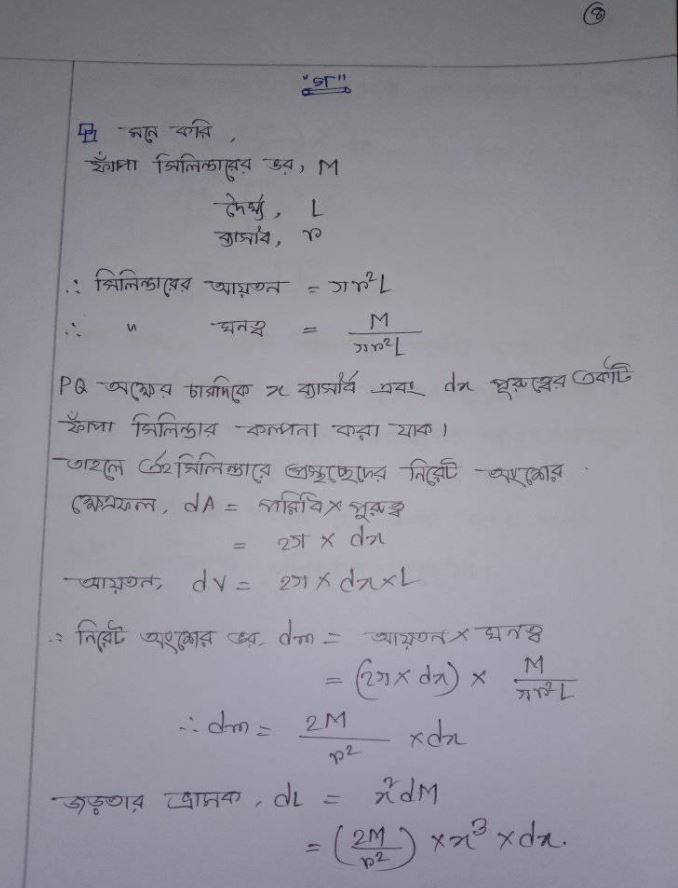 ৪
"গ"
মনে করি,
ফাঁপা সিলিন্ডারের ভর, M
দৈর্ঘ্য, L
ব্যাসার্ধ, r
∴ সিলিন্ডারের আয়তন = πr²L
∴ " ঘনত্ব = M/πr²L
PQ অক্ষের চারদিকে x ব্যাসার্ধ এবং dx পুরুত্বের একটি
ফাঁপা সিলিন্ডার কল্পনা করা যাক।
তাহলে ঐ সিলিন্ডারে প্রস্থচ্ছেদের নিরেট অংশের
ক্ষেত্রফল, dA = পরিধি × পুরুত্ব
= 2π × dx
আয়তন, dV = 2π × dx × L
∴ নিরেট অংশের ভর, dm = আয়তন × ঘনত্ব
= (2π × dx) × M/πr²L
∴ dm = 2M/r² × dx
জড়তার ভ্রামক, dL = x²dM
= (2M/r²) × x³ × dx.